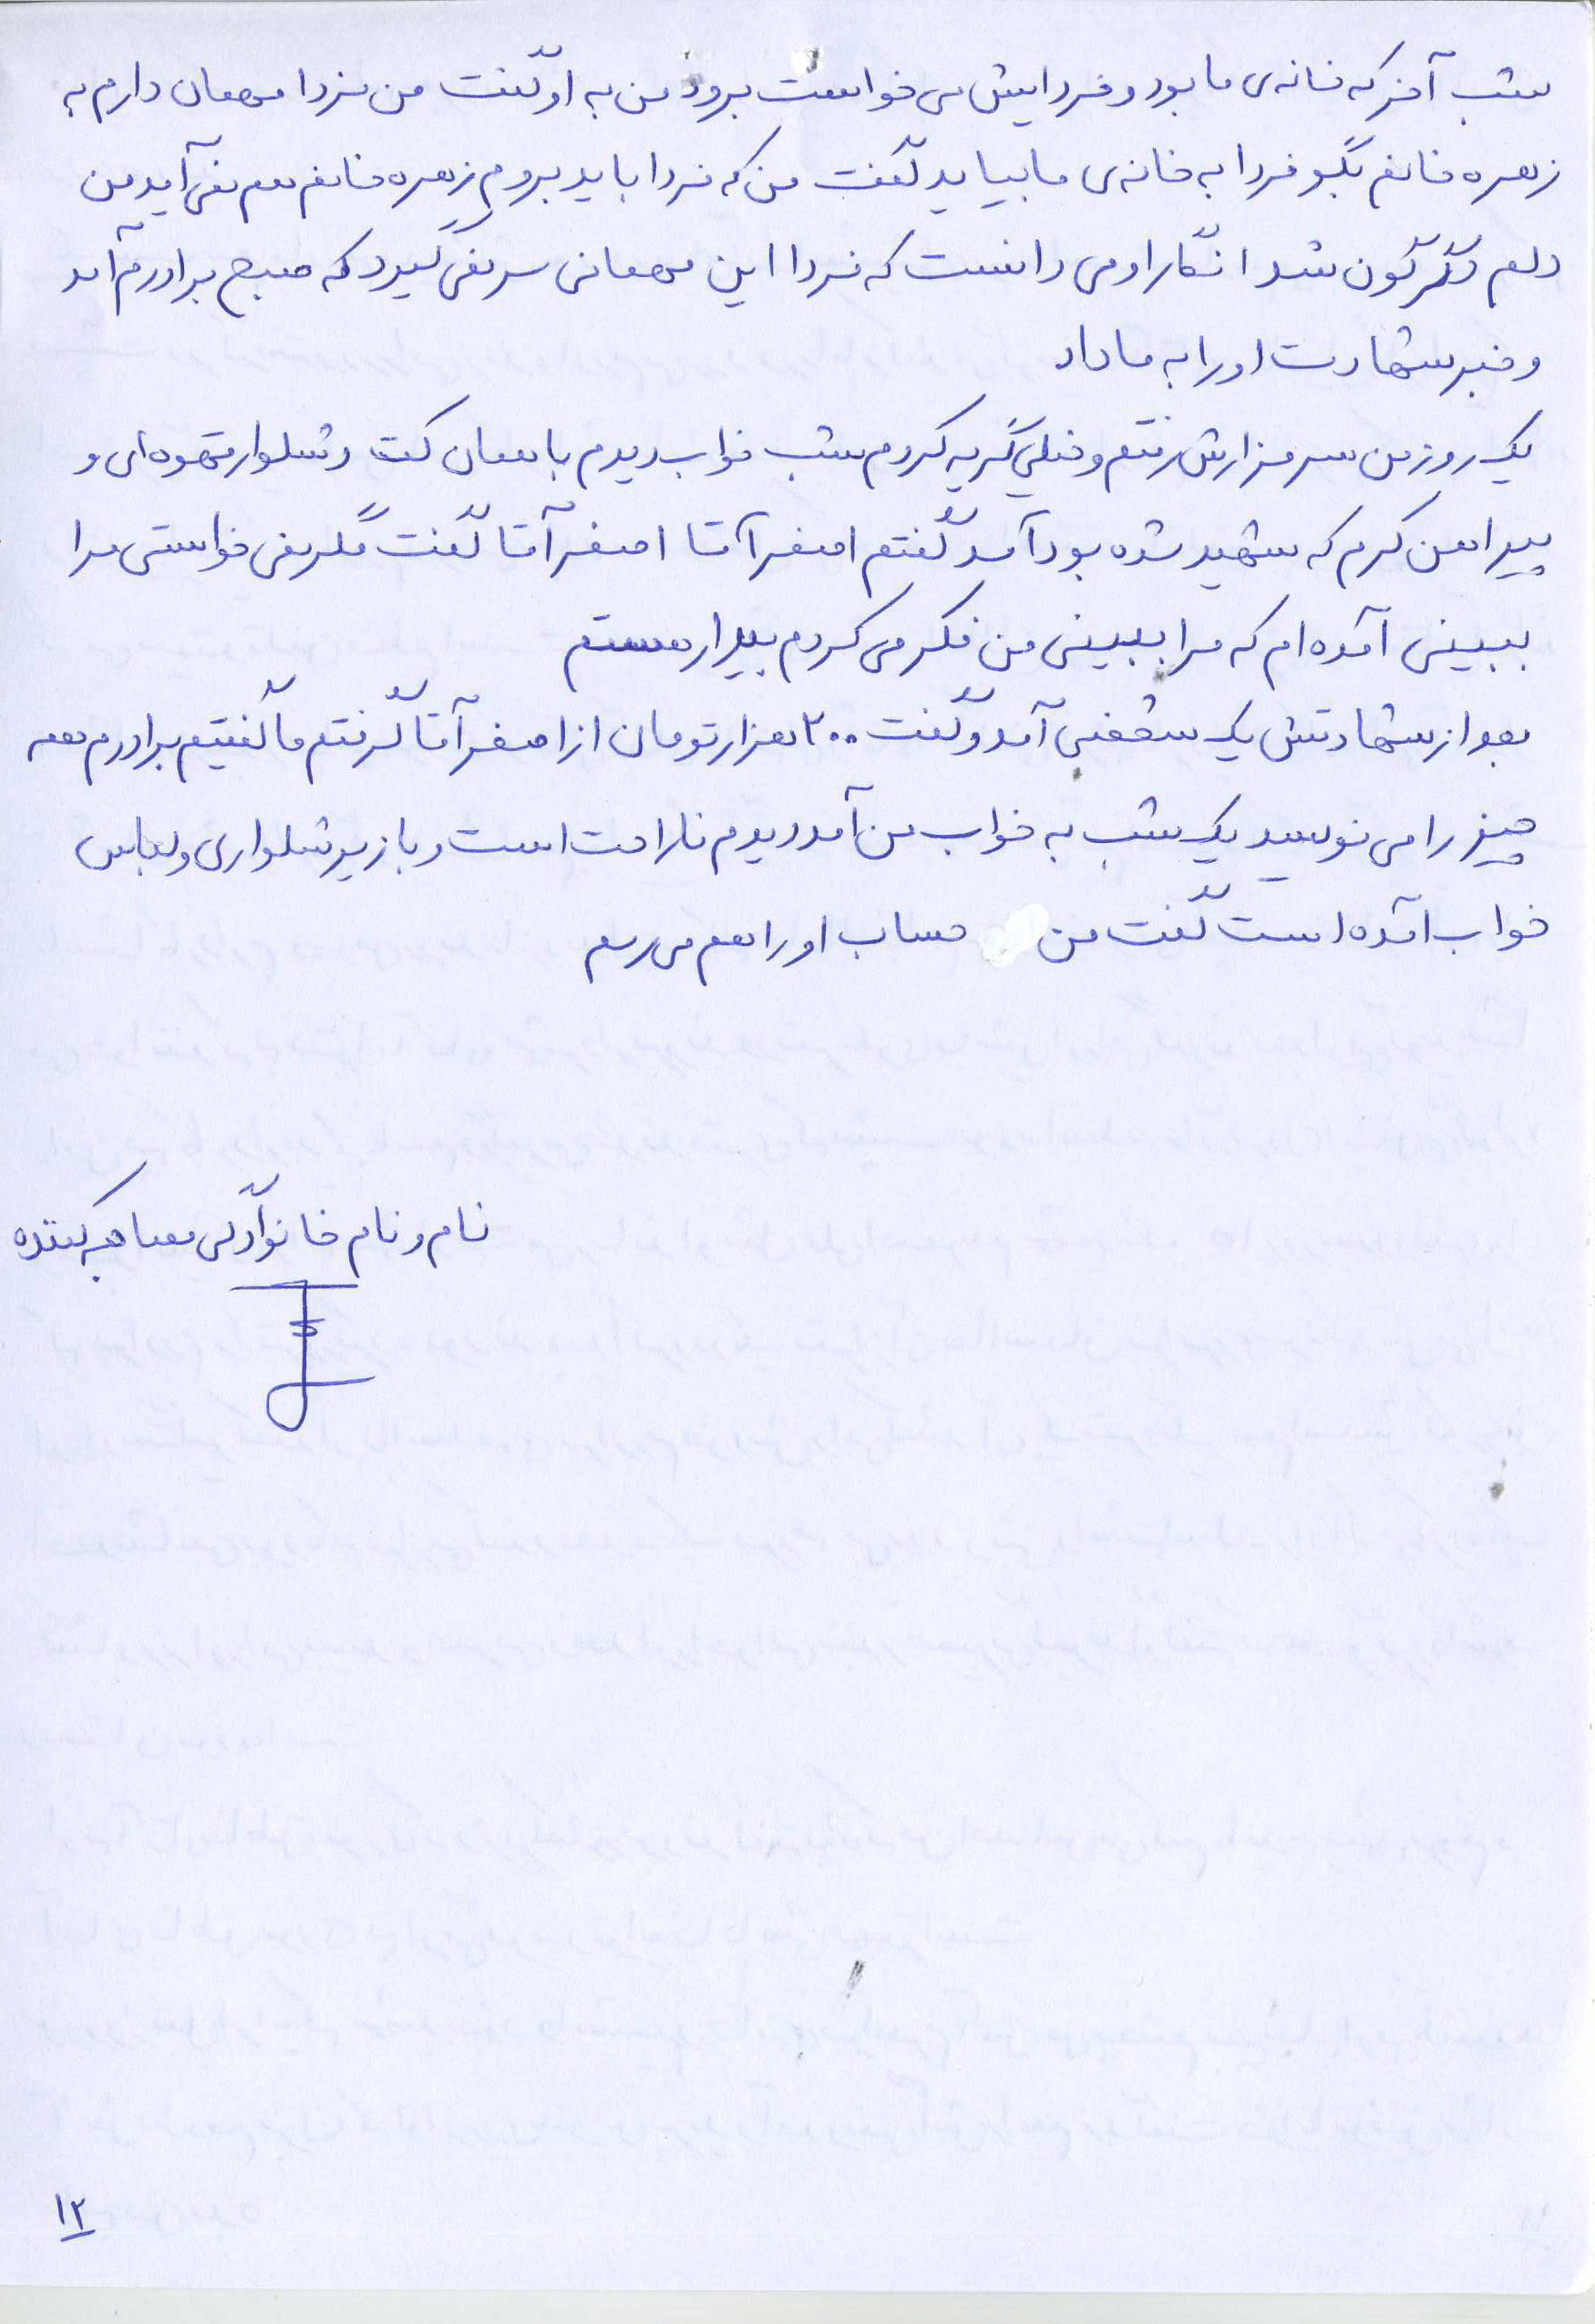 شب آخر که خانه‌ی ما بود و فردایش می خواست برود من به او گفت من فردا مهمان دارم به
زهره خانم بگو فردا به خانه‌ی ما بیاید گفت من که فردا باید بروم زهره خانم هم نمی آید من
دلم دگرگون شد انگار او می دانست که فردا این مهمانی سر نمی گیرد که صبح برادرم آمد
و خبر شهادت او را به ما داد
یک روز من سر مزارش رفتم و خیلی گریه کردم شب خواب دیدم با همان کت و شلوار قهوه ای و
پیراهن کرم که شهید شده بود آمد گفتم اصغر آقا اصغر آقا گفت مگر نمی خواستی مرا
ببینی آمده ام که مرا ببینی من فکر می کردم بیدار هستم
بعد از شهادتش یک شخصی آمد و گفت ۲۰۰ هزار تومان از اصغر آقا گرفتم ما گفتیم برادرم همه
چیز را می نویسد یک شب به خواب من آمد دیدم ناراحت است و با زیر شلواری و لباس
خواب آمده است گفت من حساب او را هم می رسم
نام و نام خانوادگی مصاحبه کننده
۱۲